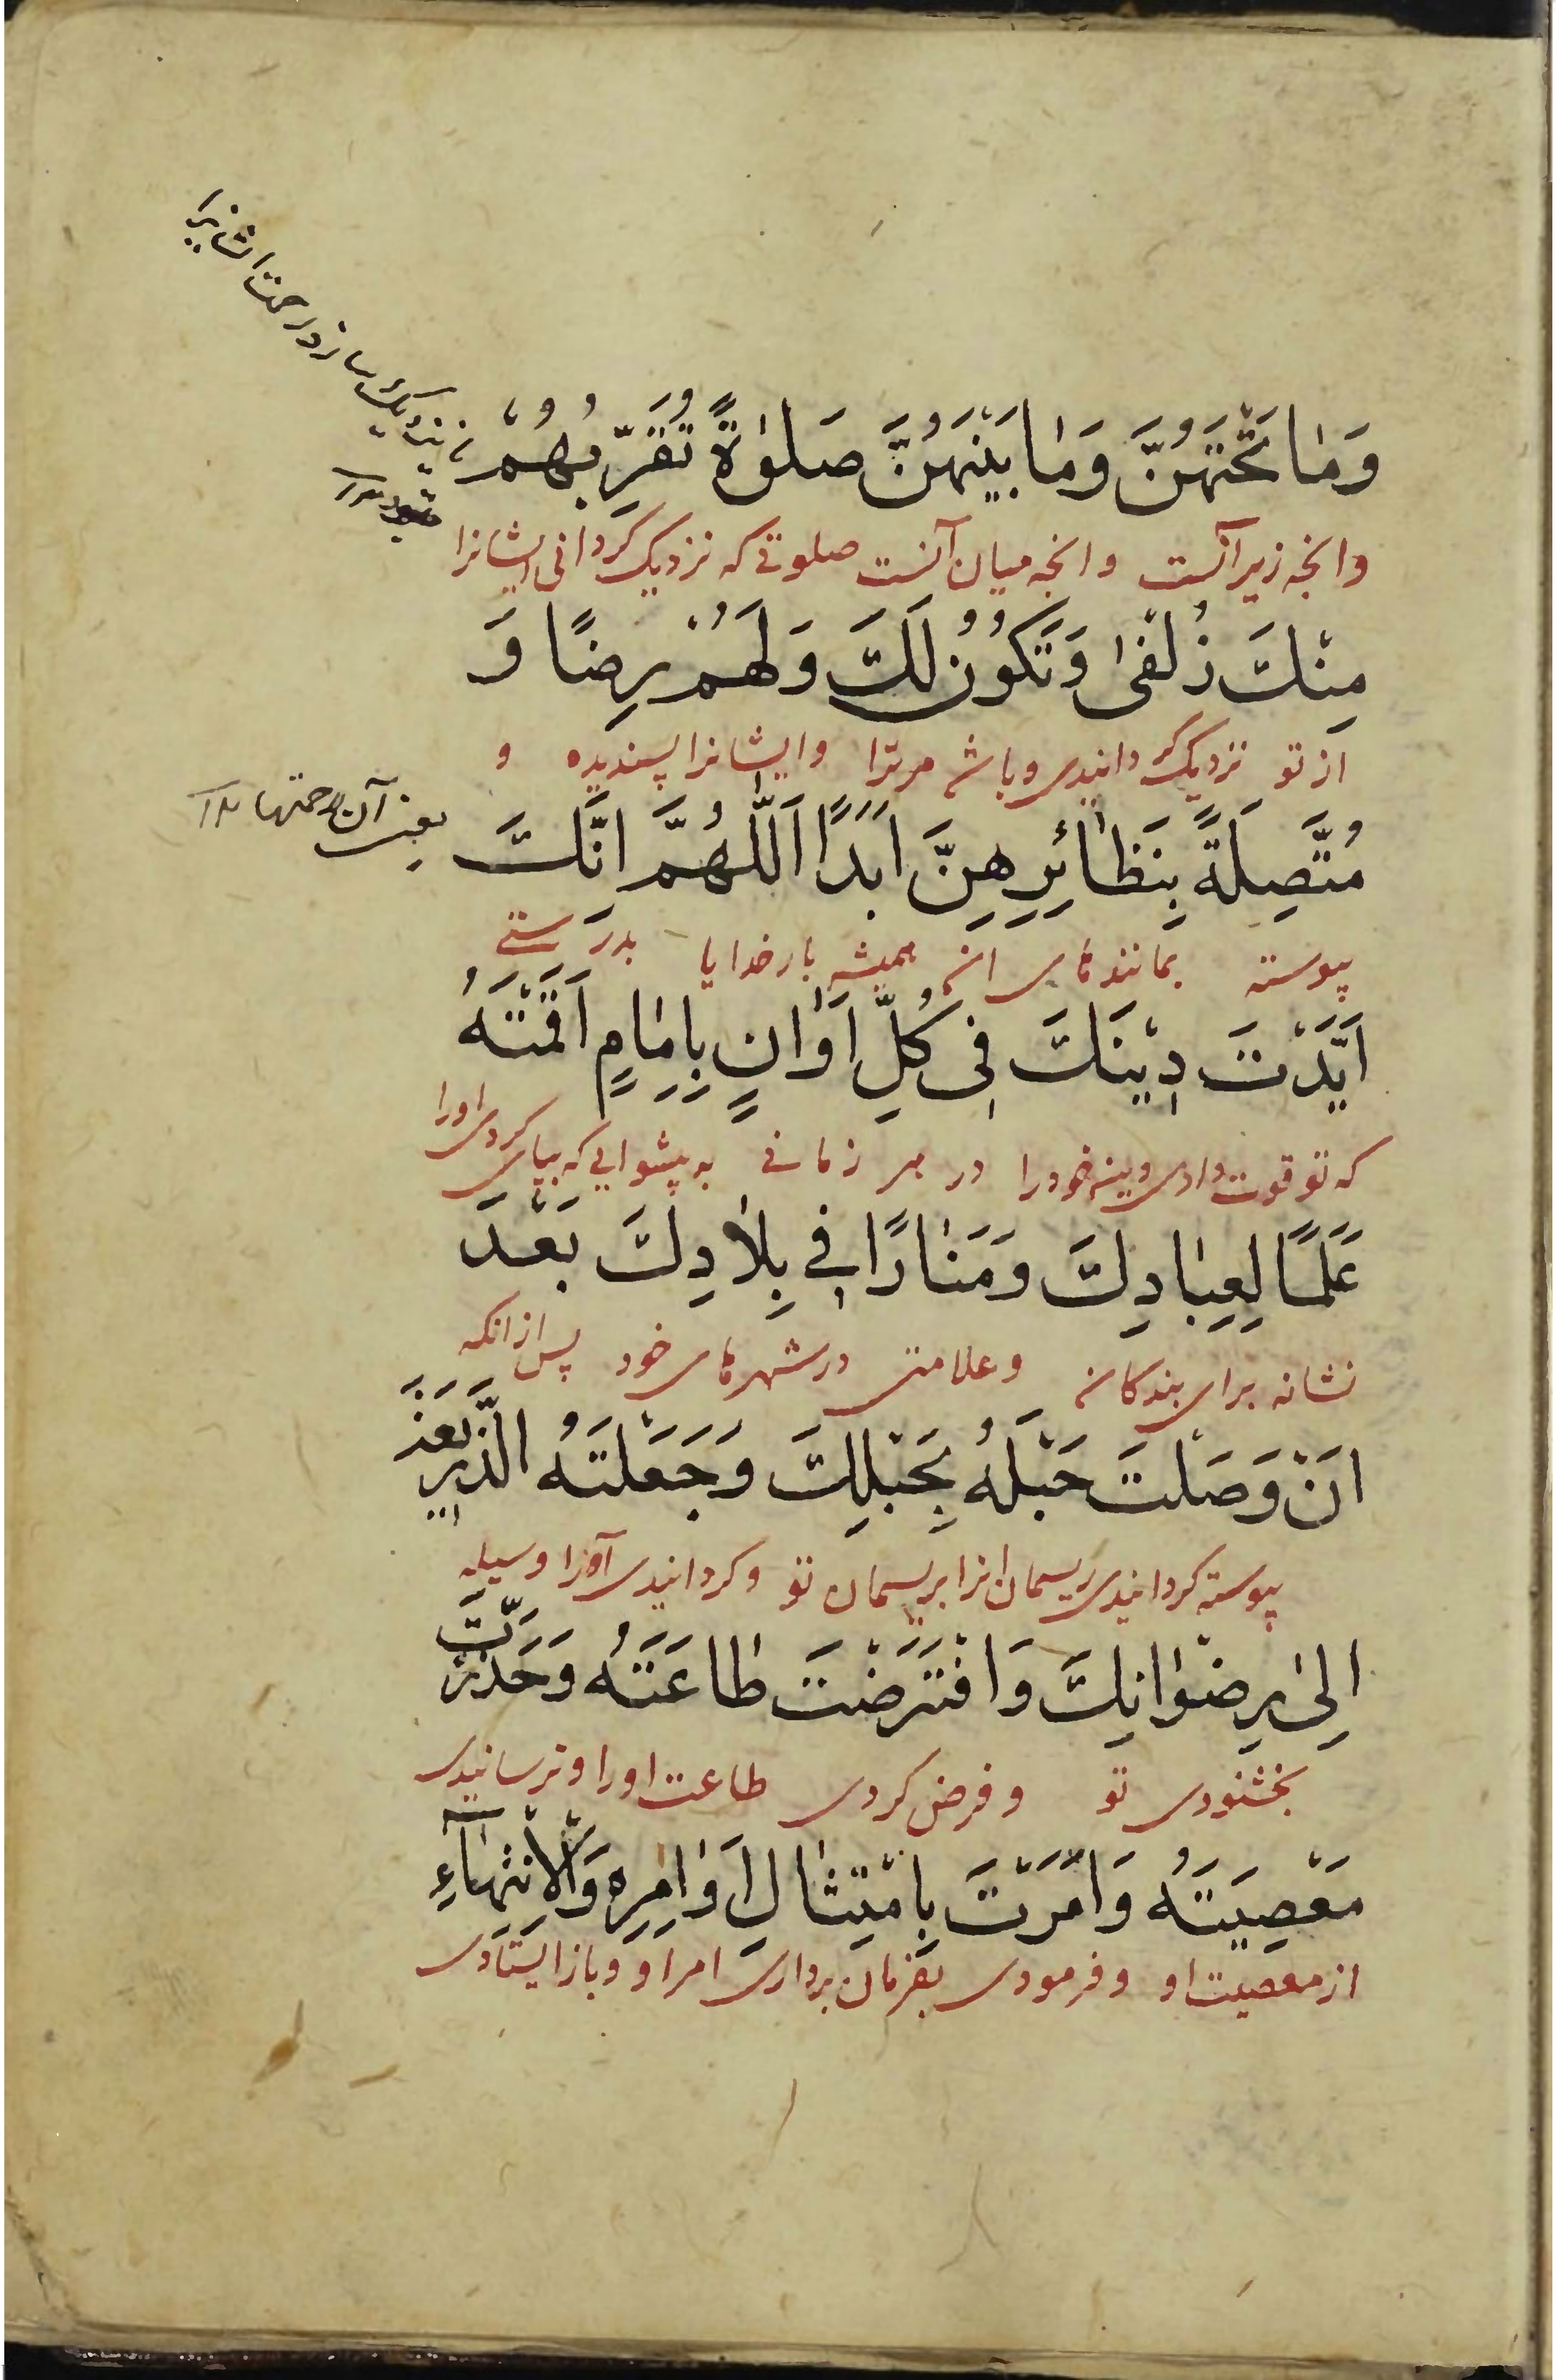 وَمٰا تَحْتَهُنَّ وَمٰا بَيْنَهُنَّ صَلوٰةً تُقَرِّبُهُمْ
وانچه زیر آنست وانچه میان آنست صلوتی که نزدیک کردانی ایشانرا
مِنْكَ زُلْفىٰ وَتَكُوْنُ لَكَ وَلَهُمْ رِضًا وَ
از تو نزدیک کردانیدی وباشد مرترا وایشانرا پسندیده و
مُتَّصِلَةً بِنَظٰائِرِهِنَّ اَبَدًا اَللّٰهُمَّ اِنَّكَ
یعنی آن رحمتها
پیوسته بمانندهای ان همیشه بار خدایا بدرستی
اَيَّدْتَ دِيْنَكَ فِى كُلِّ اَوٰانٍ بِاِمٰامٍ اَقَمْتَهُ
که تو قوت دادی دین خودرا در هر زمانی به پیشوایی که بپای کردی اورا
عَلَمًا لِعِبٰادِكَ وَمَنٰارًا فِي بِلٰادِكَ بَعْدَ
نشانه برای بندکان و علامتی در شهرهای خود پس ازانکه
اَنْ وَصَلْتَ حَبْلَهُ بِحَبْلِكَ وَجَعَلْتَهُ الذَّرِيْعَةَ
پیوسته کردانیدی ریسمان انرا بریسمان تو و کردانیدی آنرا وسیله
اِلىٰ رِضْوٰانِكَ وَافْتَرَضْتَ طٰاعَتَهُ وَحَذَّرْتَ
بخشنودی تو و فرض کردی طاعت اورا و ترسانیدی
مَعْصِيَتَهُ وَاَمَرْتَ بِامْتِثٰالِ اَوٰامِرِهِ وَالْاِنْتِهٰآءِ
از معصیت او و فرمودی بفرمان برداری امر او و باز ایستادی
نزدیک سازد رحمت ایشانرا